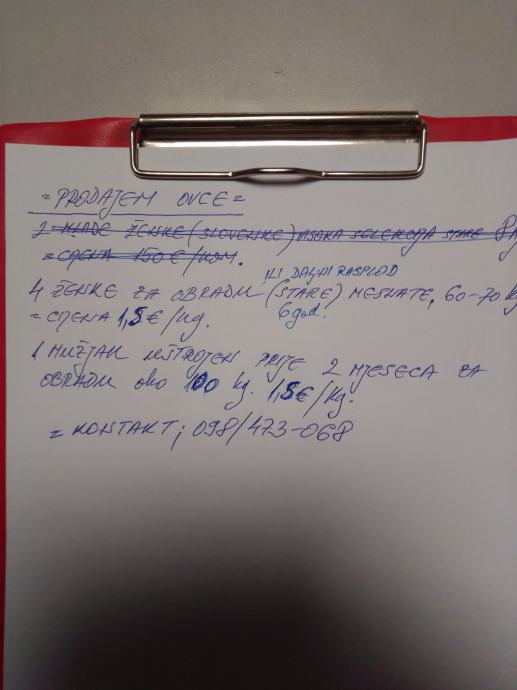 = PRODAJEM OVCE =
2 MLADE ŽENKE (SLOVENKE) VISOKA SELEKCIJA STARE 8
= CJENA 150 € / KOM.
ILI DALJNI RASPLOD
4 ŽENKE ZA OBRADU (STARE) MESNATE, 60-70 kg
6 god.
= CJENA 1,5 € / kg.
1 MUŽJAK UŠTROJEN PRIJE 2 MJESECA ZA
OBRADU oko 100 kg. 1,5 € / kg.
= KONTAKT; 098/473-068